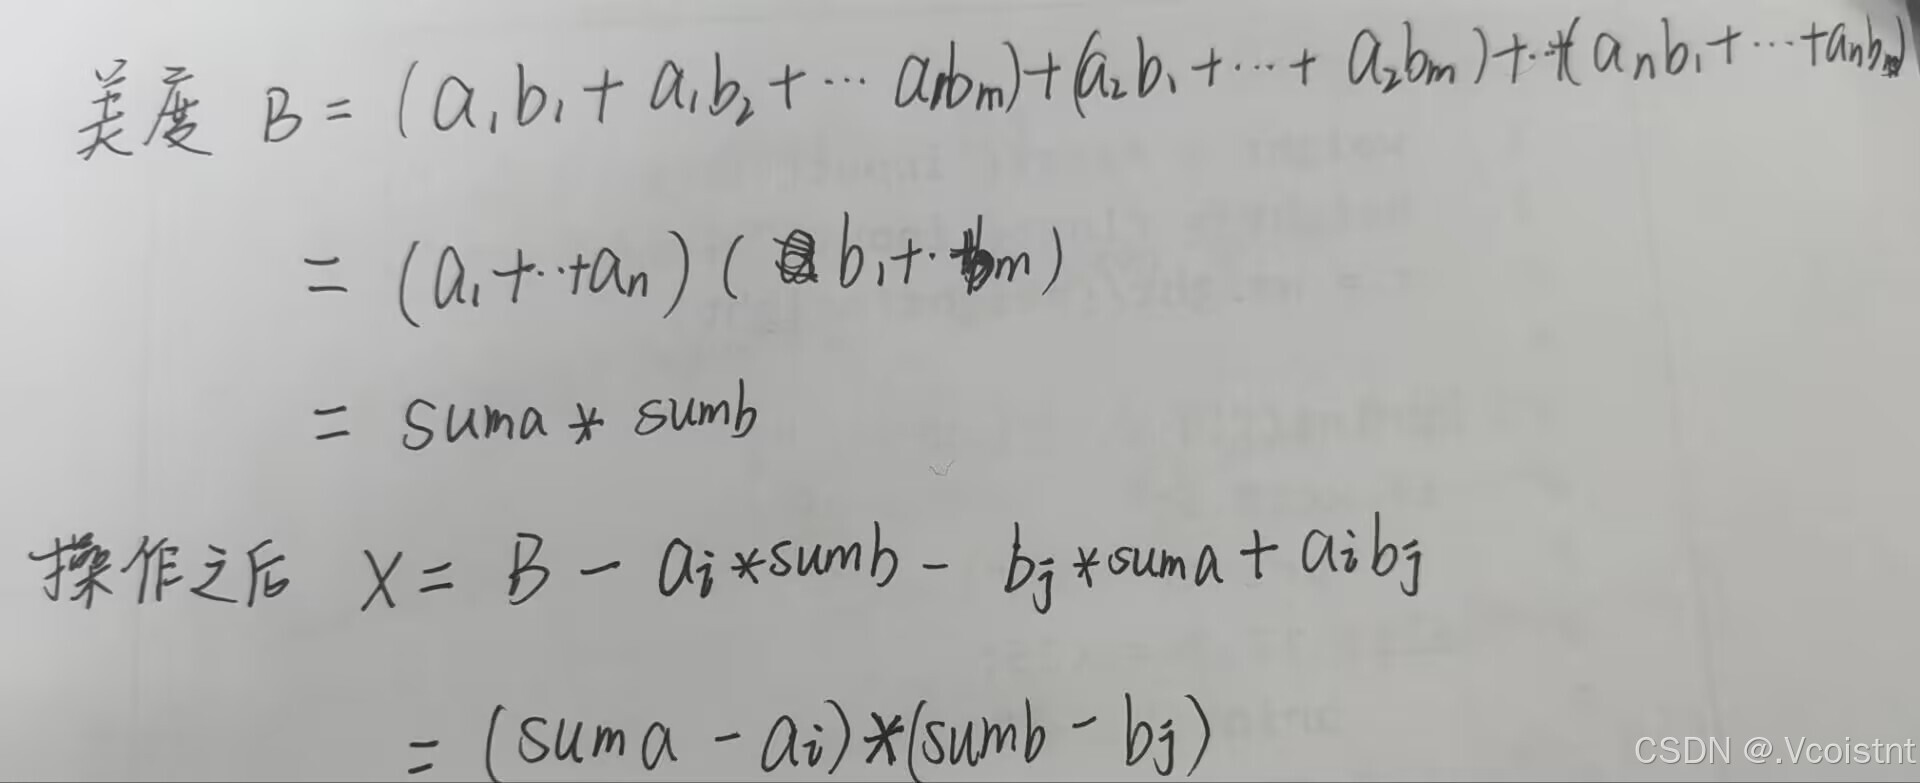 美度 B = (a₁b₁ + a₁b₂ + ... a₁bₘ) + (a₂b₁ + ... + a₂bₘ) + ... + (aₙb₁ + ... + aₙbₘ)
= (a₁ + ... + aₙ) ( b₁ + ... + bₘ )
= suma * sumb
操作之后 X = B - aᵢ * sumb - bⱼ * suma + aᵢbⱼ
= (suma - aᵢ) * (sumb - bⱼ)
CSDN @.Vcoistnt